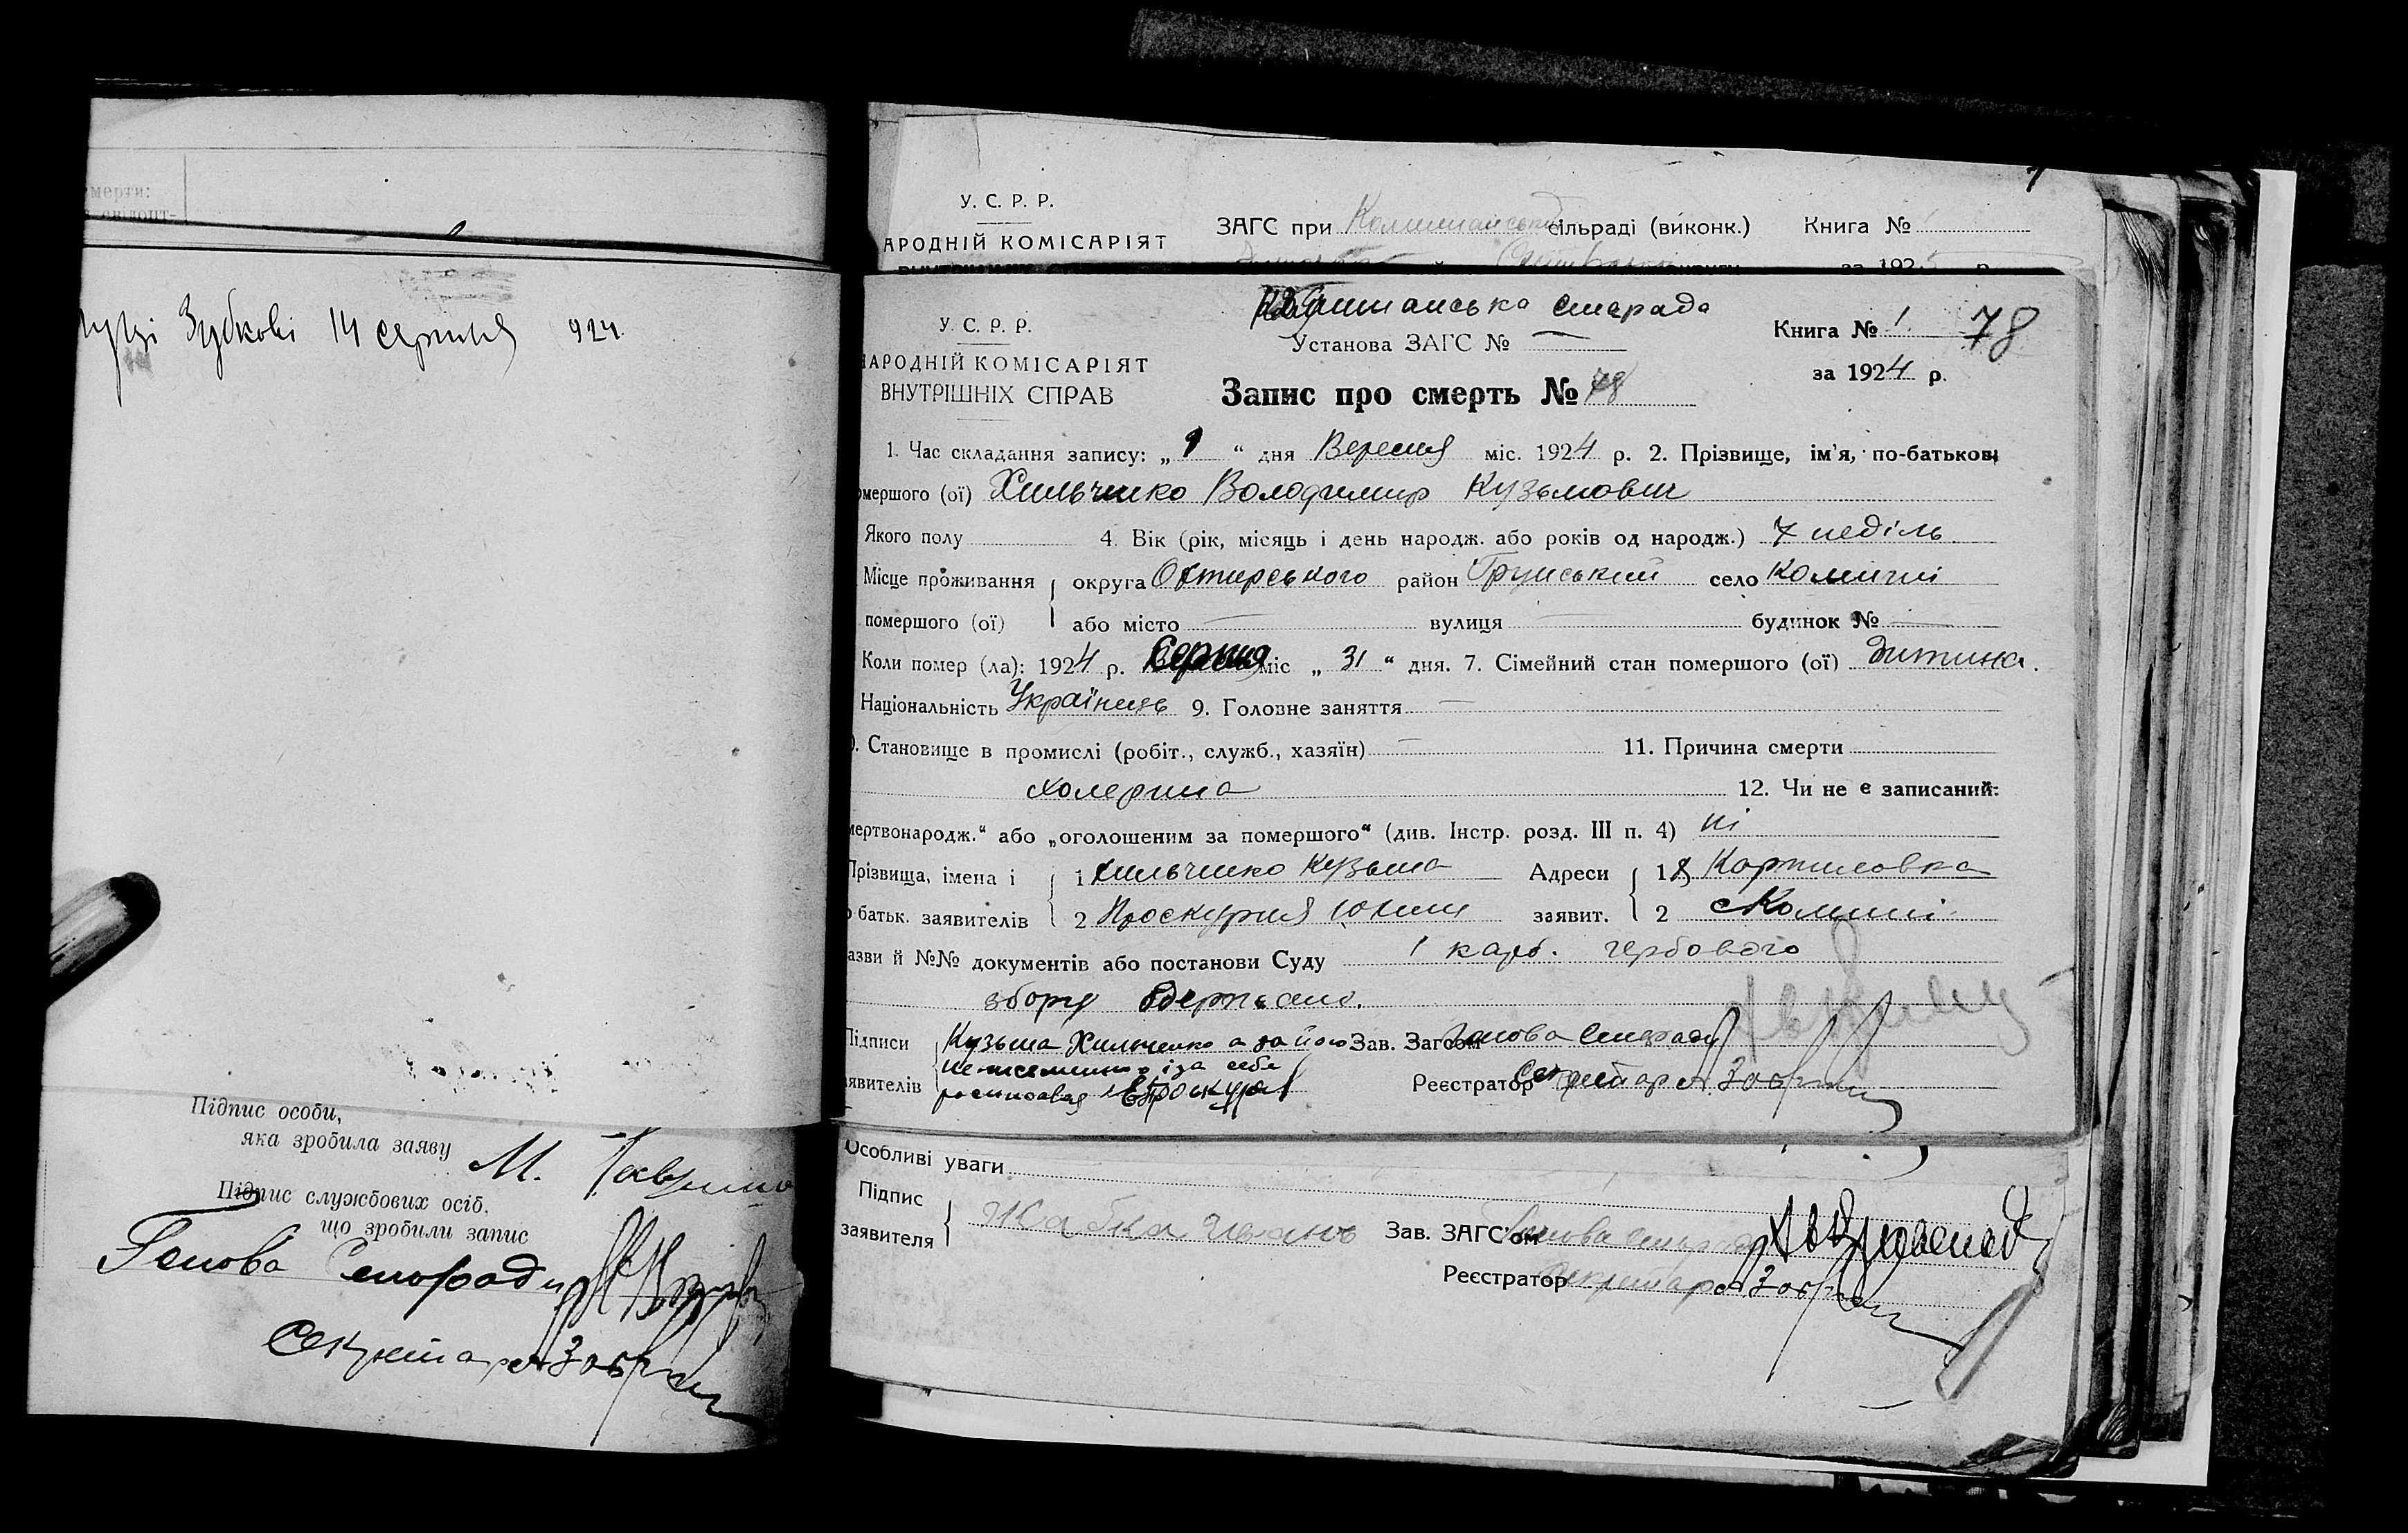 мерти:
Зубкові 14 серпня 924.
Підпис особи,
яка зробила заяву М.
Підпис службових осіб,
що зробили запис
Голова Сільради
Секретар
У. С. Р. Р.
АРОДНІЙ КОМІСАРІЯТ
ЗАГС при сільраді (виконк.) Книга №
за 192
сільрада
У. С. Р. Р.
НАРОДНІЙ КОМІСАРІЯТ
ВНУТРІШНІХ СПРАВ
Установа ЗАГС № —
Книга № 1. 78
за 1924 р.
Запис про смерть № 78
1. Час складання запису: „ 1 “ дня Вересня міс. 1924 р. 2. Прізвище, ім'я, по-батькові
омершого (ої) Хильченко Володимир Кузьмович
Якого полу 4. Вік (рік, місяць і день народж. або років од народж.) 7 неділь
Місце проживання округа Охтирського район Грунський село Комиші
помершого (ої) або місто — вулиця — будинок № —
Коли помер (ла): 1924 р. Серпня міс „ 31 “ дня. 7. Сімейний стан помершого (ої) дитина.
Національність Українець 9. Головне заняття —
0. Становище в промислі (робіт., служб., хазяїн) — 11. Причина смерти
холерина 12. Чи не є записаний:
мертвонародж.“ або „оголошеним за помершого“ (див. Інстр. розд. III п. 4) ні
Прізвища, імена і 1 Хильченко Кузьма — Адреси 1
о батьк. заявителів 2 Проскурня заявит. 2 Комиші
азви й №№ документів або постанови Суду 1 карб. гербового
збору одержано.
Підписи Кузьма Хильченко а за його Зав. Загсом Голова Сільради
неписьменного і за себе
аявителів росписався Проскурня Реєстратор Секретар
Особливі уваги
Підпис
заявителя Жабка Иванъ Зав. ЗАГС'ом Голова
Реєстратор Секретар